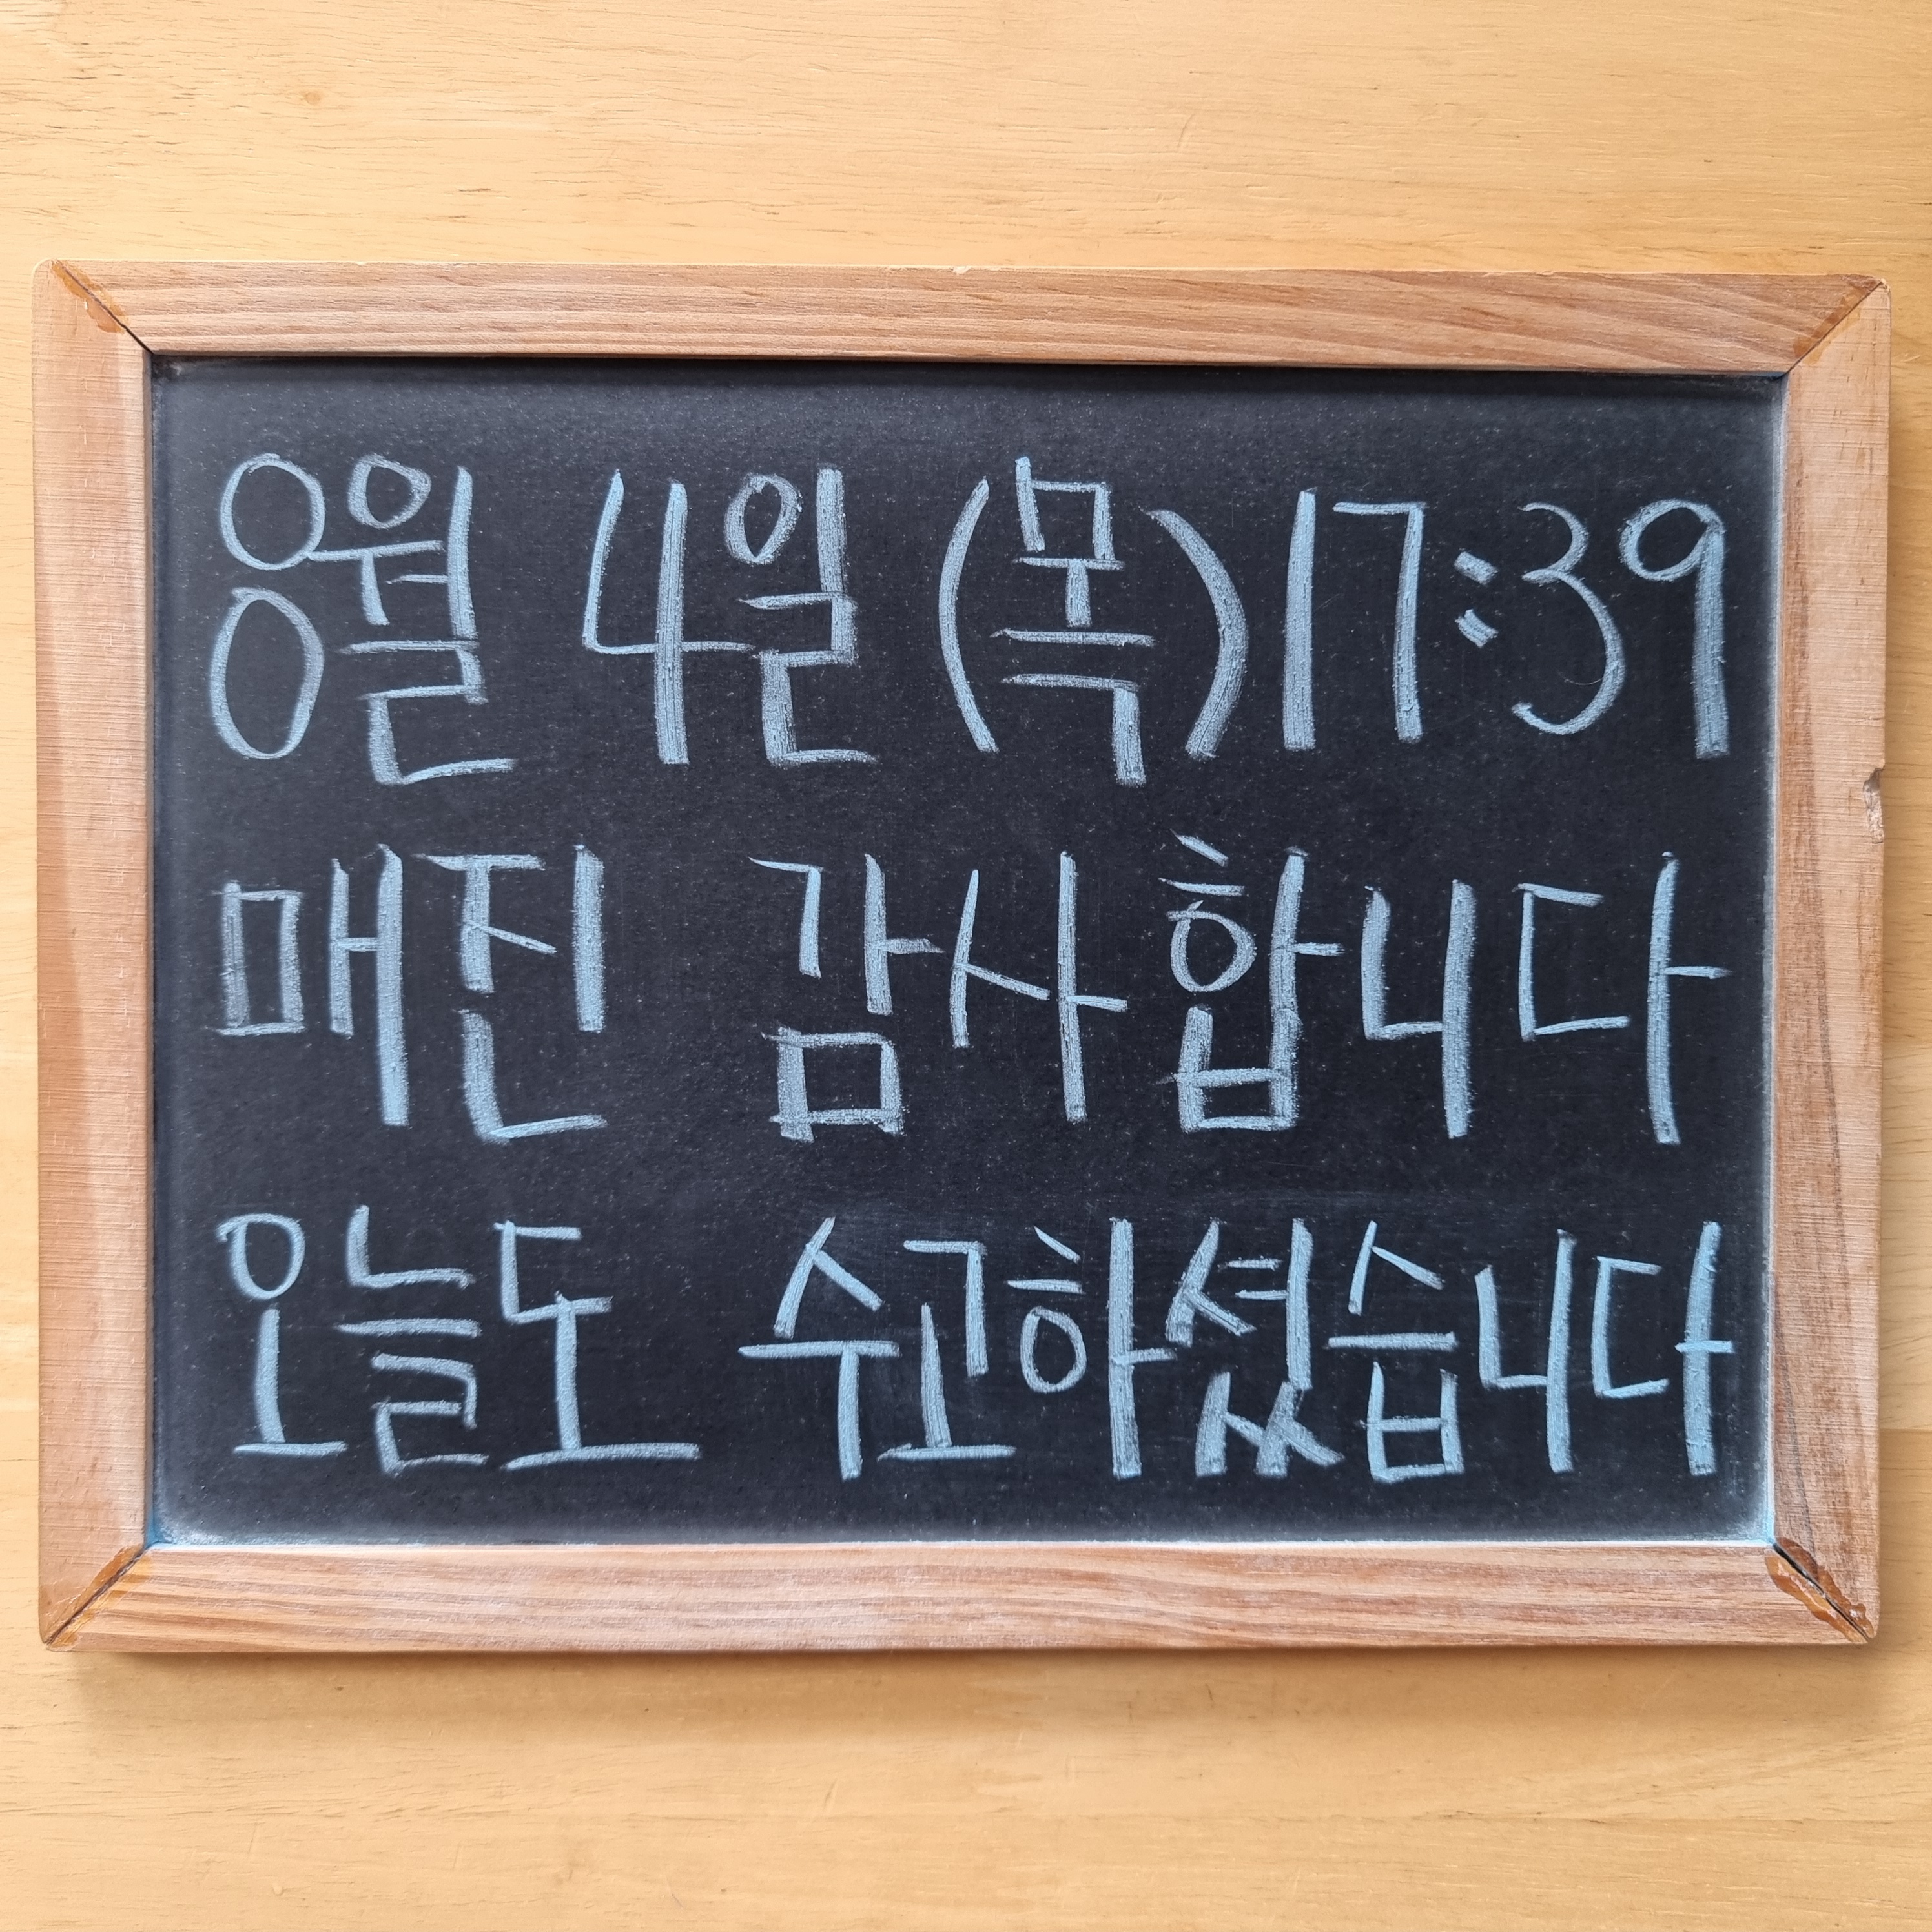 8월 4일 (목) 17:39
매진 감사합니다
오늘도 수고하셨습니다